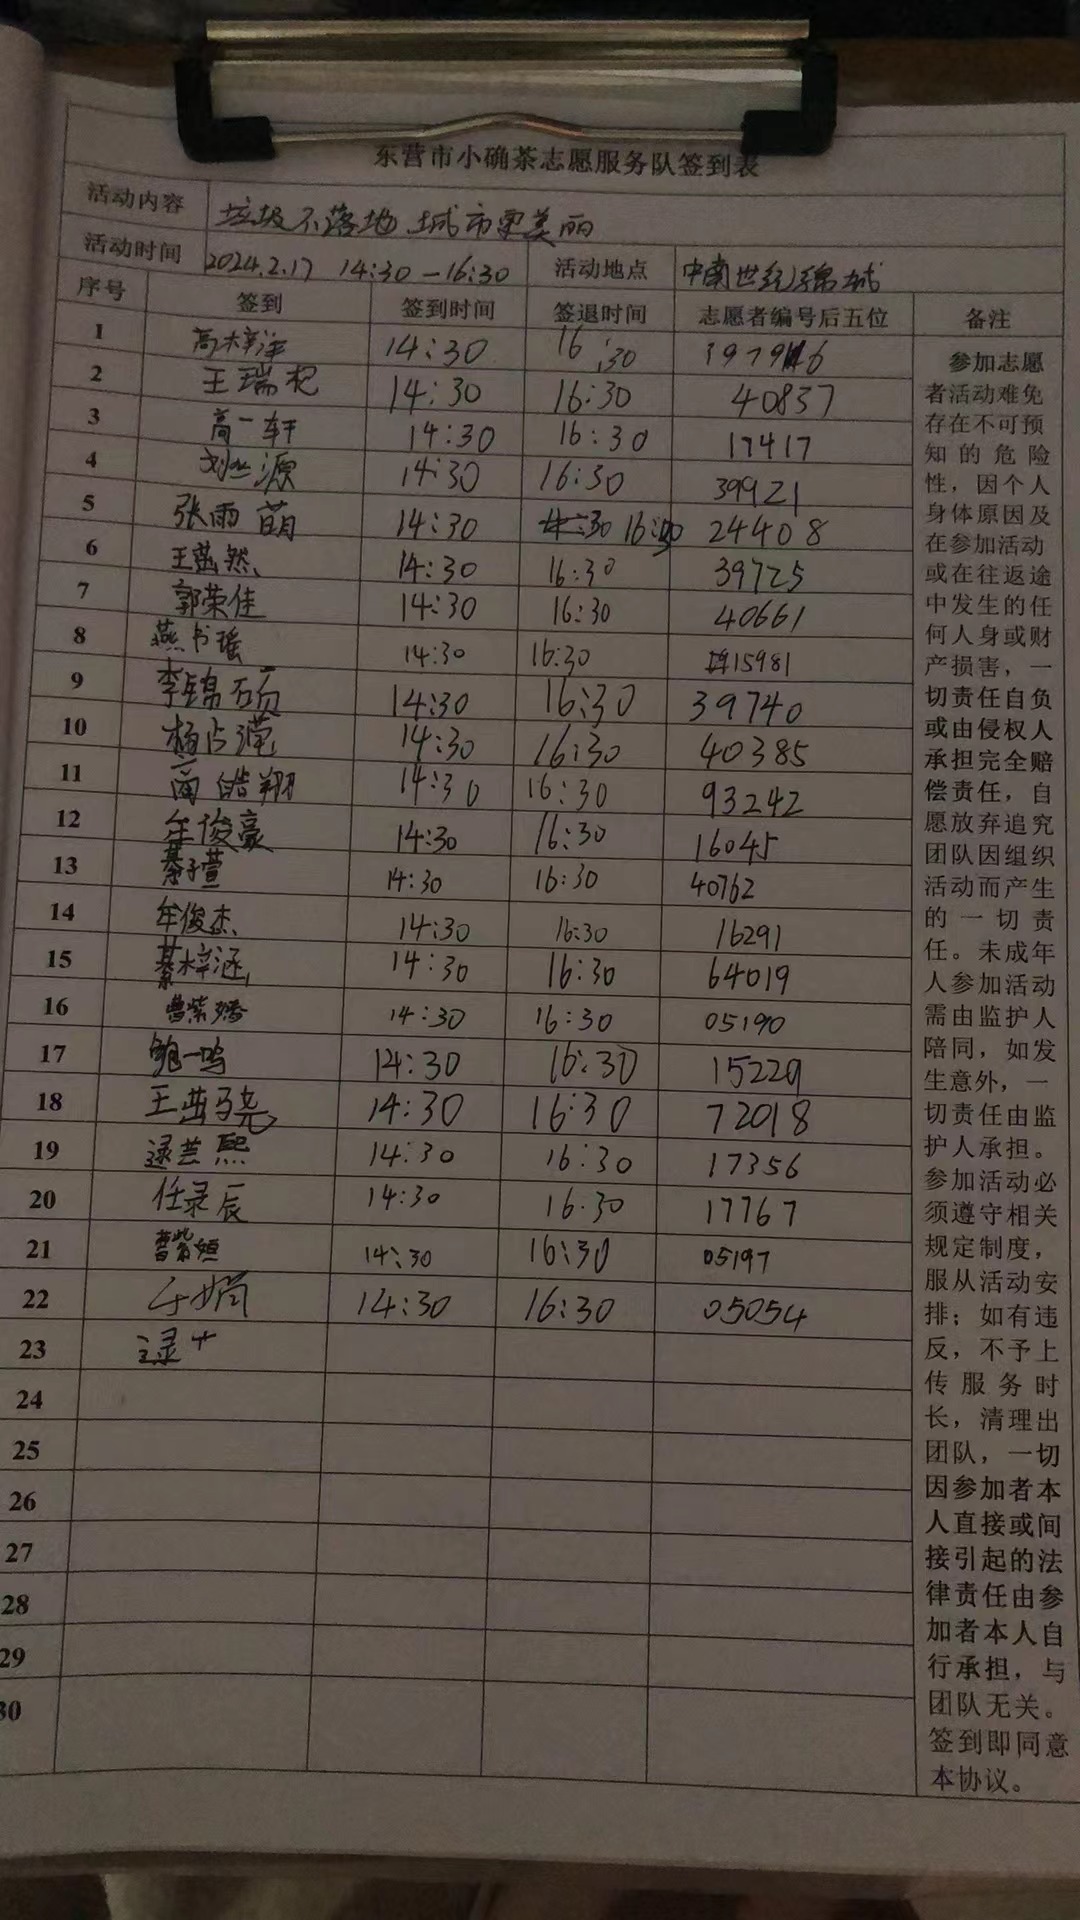 东营市小确茶志愿服务队签到表
活动内容 垃圾不落地 城市更美丽
活动时间 2024.2.17 14:30—16:30 活动地点 中南世纪锦城
序号 签到 签到时间 签退时间 志愿者编号后五位 备注
1 高梓洋 14:30 16:30
2 王瑞 14:30 16:30 40837
3 高一轩 14:30 16:30 17417
4 源 14:30 16:30 39921
5 张雨萌 14:30 16:30 24408
6 王菡然 14:30 16:30 39725
7 郭荣佳 14:30 16:30 40661
8 燕书瑶 14:30 16:30 15981
9 李锦硕 14:30 16:30 39740
10 杨占滢 14:30 16:30 40385
11 商皓翔 14:30 16:30 93242
12 牟俊豪 14:30 16:30 16045
13 綦子萱 14:30 16:30 40762
14 牟俊杰 14:30 16:30 16291
15 綦梓涵 14:30 16:30 64019
16 曹紫 14:30 16:30 05190
17 鲍一鸣 14:30 16:30 15229
18 王茜骁 14:30 16:30 72018
19 逯芸熙 14:30 16:30 17356
20 任录辰 14:30 16.30 17767
21 曹紫姮 14:30 16:30 05197
22 于娟 14:30 16:30 05054
23 逯艹
24
25
26
27
28
29
30
参加志愿
者活动难免
存在不可预
知的危险
性，因个人
身体原因及
在参加活动
或在往返途
中发生的任
何人身或财
产损害，一
切责任自负
或由侵权人
承担完全赔
偿责任，自
愿放弃追究
团队因组织
活动而产生
的一切责
任。未成年
人参加活动
需由监护人
陪同，如发
生意外，一
切责任由监
护人承担。
参加活动必
须遵守相关
规定制度，
服从活动安
排；如有违
反，不予上
传服务时
长，清理出
团队，一切
因参加者本
人直接或间
接引起的法
律责任由参
加者本人自
行承担，与
团队无关。
签到即同意
本协议。